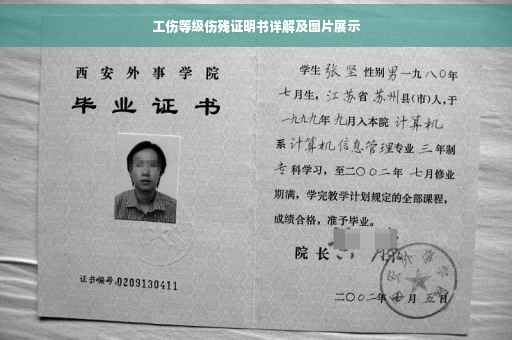 工伤等级伤残证明书详解及图片展示
西安外事学院
毕业证书
证书编号:0209130411
学生 张坚 性别 男 一九八〇年
七月生，江苏省 苏州县(市)人,于
一九九九年 九月入本院 计算机
系 计算机信息管理专业 三 年制
专科学习，至二〇〇二年 七月修业
期满，学完教学计划规定的全部课程，
成绩合格，准予毕业。
院长
二〇〇二年 月 五 日